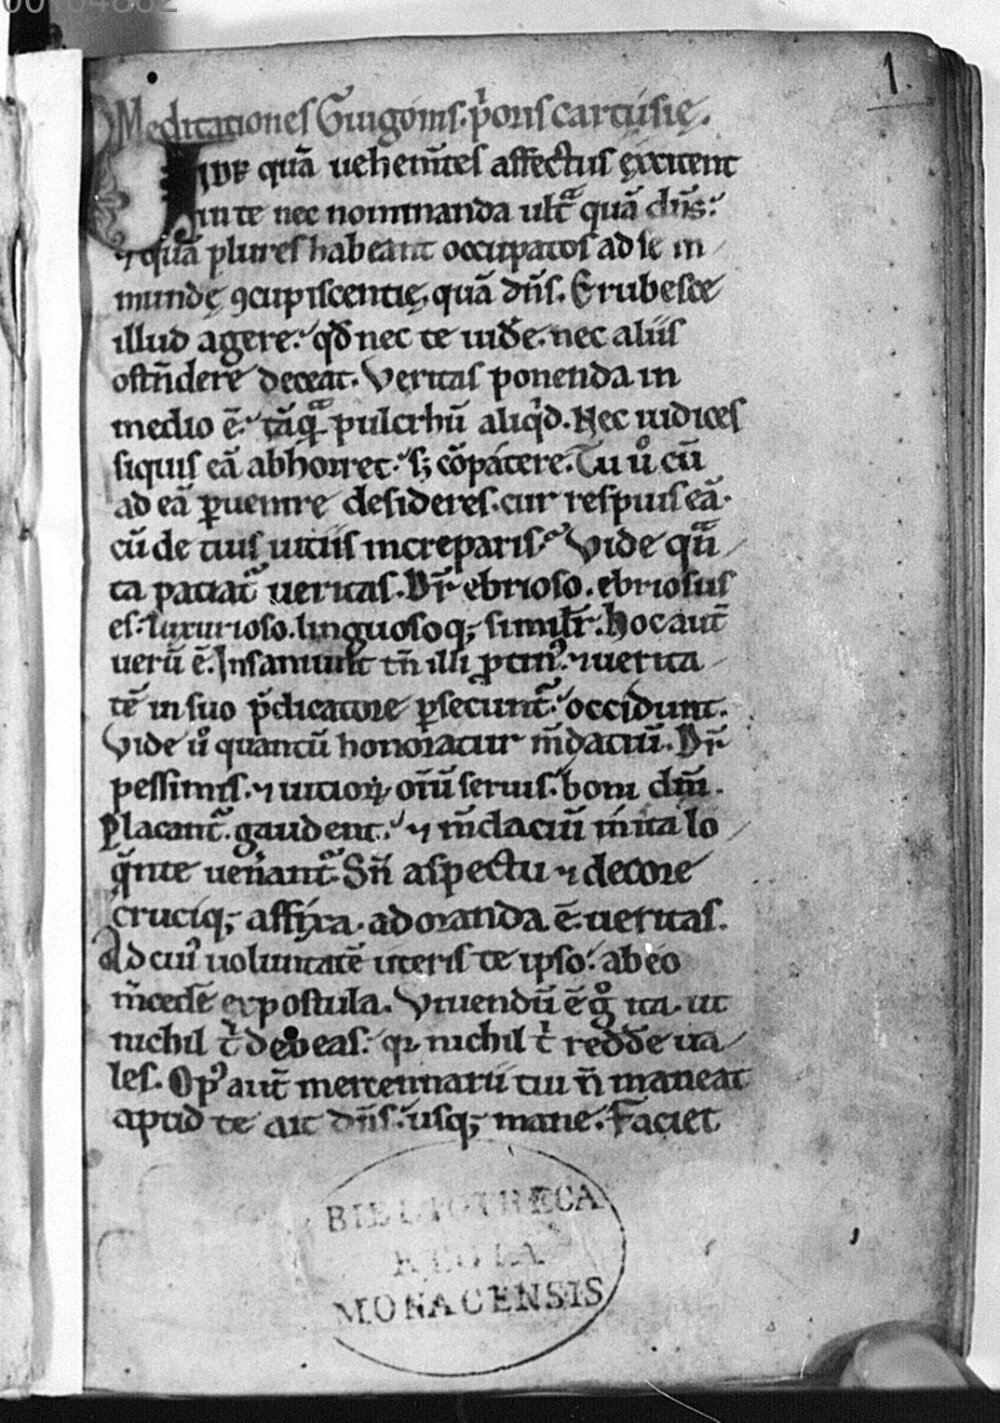 00064882
1.
Meditationes Guigonis. p̓oris cartusię.
VIDE quā uehem̄tes affectus excitent
in te nec nominanda ult̄ quā dn̄s:
⁊ quā plures habeant occupatos ad se in
mundę ꝯcupiscentię, quā dn̄s. Erubesce
illud agere. qd̄ nec te uidēe. nec aliis
ostn̄dere deceat. Veritas ponenda in
medio ē. tāqᷓ pulcrhū aliqͥd. Nec iudices
siquis eā abhorret. sꝫ cōpatere. Tu uͦ cū
ad eā ꝑuenire desideres. cur respuis eā.
cū de tuis uitiis increparis? Vide quā
ta patiat᷑ ueritas. Dr̄ ebrioso. ebriosus
es. luxurioso. linguosoq; similr̄. Hoc aut̄
uerū ē. Insaniunt tn̄ illi ꝓtinꝰ. ⁊ uerita
tē in suo p̄dicatore ꝑsecunt᷑. occidunt.
Vide uͦ quantū honoratur m̄daciū. Dr̄
pessimis. ⁊ uitioꝝ oīū seruis. boni dn̄i.
Placant᷑. gaudent. ⁊ m̄daciū in ita lo
qͣnte uen̄ant᷑. Sn̄ aspectu ⁊ decore
cruciq; affixa. adoranda ē ueritas.
Ad cuiꝰ uoluntatē uteris te ipso. ab eo
m̄cedē expostula. Viuendū ē gͦ ita. ut
nichil tͥ debeas. qꝛ nichil tͥ reddēe ua
les. Opꝰ aut̄ mercennarii tui n̄ maneat
apud te ait dn̄s. usq; mane. Faciet
BIBLIOTHECA
REGIA
MONACENSIS